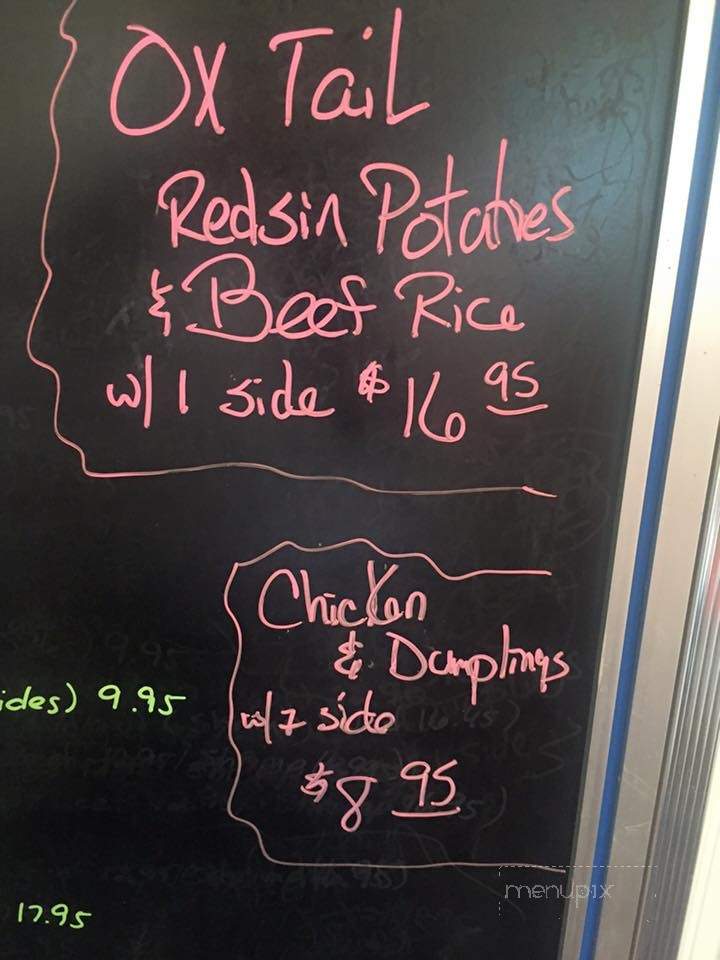 Ox Tail
Redsin Potatoes
& Beef Rice
w/ 1 side $16 95
Chicken
& Dumplings
ides) 9.95
w/ 1 side
$8 95
17.95
menupix